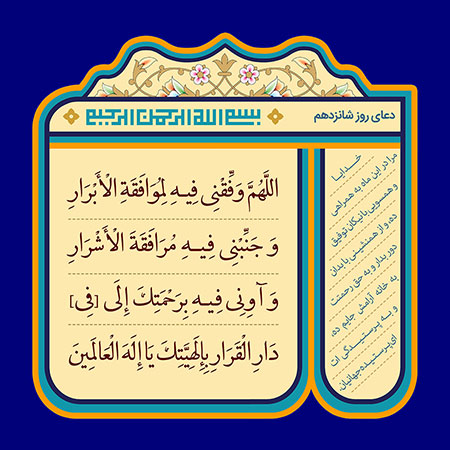 دعای روز شانزدهم
بسم الله الرحمن الرحیم
اللَّهُمَّ وَفِّقْنِی فِیهِ لِمُوَافَقَةِ الْأَبْرَارِ
وَ جَنِّبْنِی فِیهِ مُرَافَقَةَ الْأَشْرَارِ
وَ آوِنِی فِیهِ بِرَحْمَتِكَ إِلَی [فِی]
دَارِ الْقَرَارِ بِإِلَهِیَّتِكَ یَا إِلَهَ الْعَالَمِینَ
خدایا
مرا در این ماه به همراهی
و همسویی با نیکان توفیق
ده، و از همنشینی با بدان
دور بدار و به حق رحمتت
به خانه آرامش جایم ده،
و به پرستیدگی ات
ای پرستیده جهانیان.